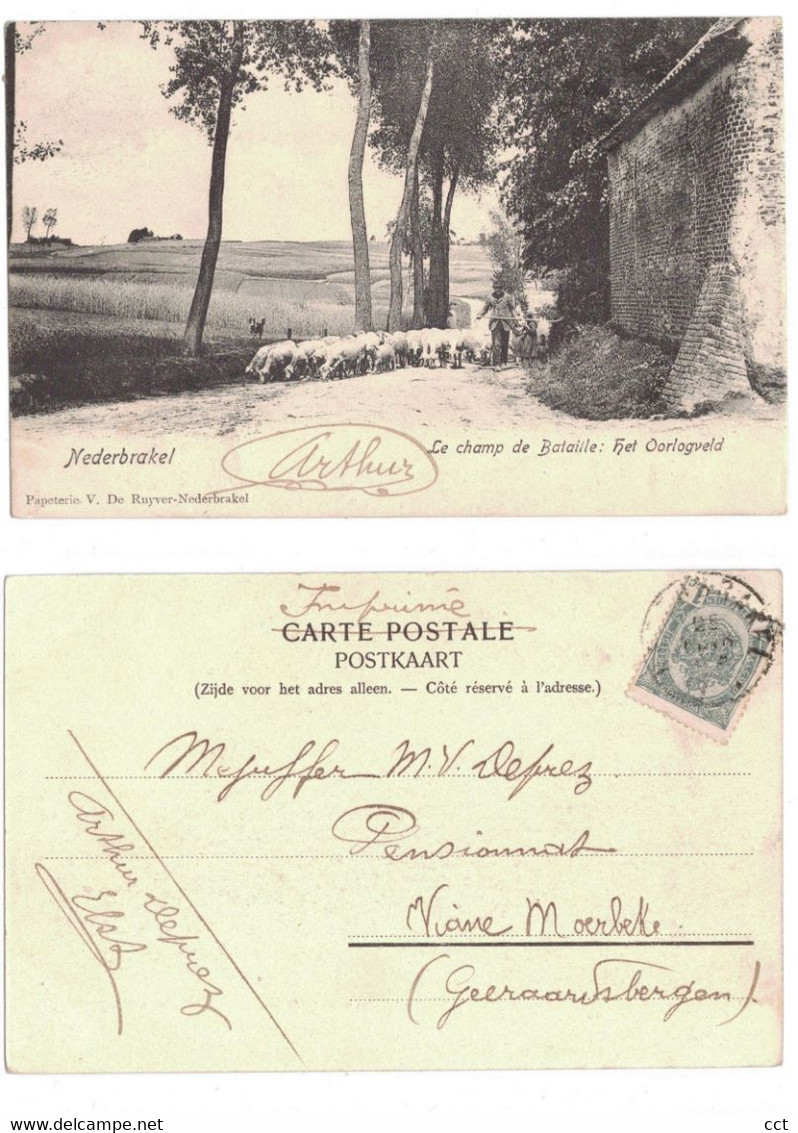 Nederbrakel
Arthur
Le champ de Bataille: Het Oorlogveld
Papeterie V. De Ruyver-Nederbrakel
Imprimé
CARTE POSTALE
POSTKAART
(Zijde voor het adres alleen. — Côté réservé à l'adresse.)
Mejuffer M.V. Deprez
Pensionnat
Viane Moerbeke
(Geeraardsbergen)
Arthur Deprez
Elst
www.delcampe.net
cct